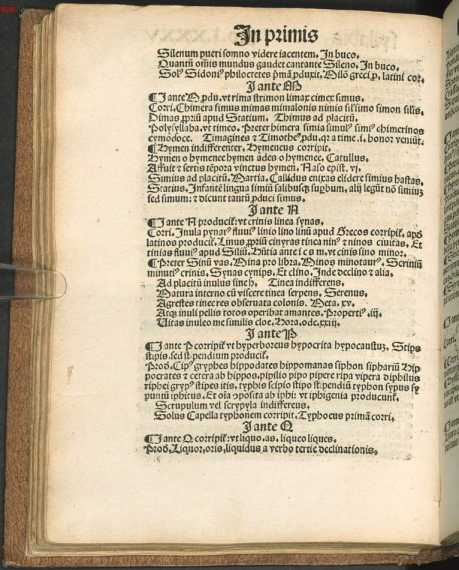 In primis
Silenum pueri somno videre iacentem. In buco.
Quantū om̄is mundus gaudet cantante Sileno. In buco.
Solꝰ Sidoniꝰ philoctetes p̄mā ꝓduxit. latini cor.
I ante M
¶I ante M ꝓdu. vt rima strimon limax cimex simus.
Corri. Chimera simus mimas mimalonis nimis simon silis.
Dimas ꝓpriū apud Statium. Thimus ad placitū
Polysyllaba. vt timeo. Preter himera simia simulꝰ simꝰ chimerinos
comōdoce. Timagines ⁊ Timotheꝰ ꝓdu. qr a time .i. honor veniūt.
¶Hymen indifferenter. Hymeneus corripit.
Hymen o hymenee hymen ades o hymenee. Catullus.
Affuit ⁊ sertis tēpora vinctus hymen. Naso epist. vj.
Simius ad placitū. Martia. Callidus enixas eludere simius hastas.
Statius. Infantē linguā simiū salibusqꝫ
sed simum: ⁊ dicunt tantū ꝓduci simus.
I ante N
¶I ante N producit: vt crinis linea synas.
Corri. Inula pynaxꝰ fluuiꝰ linio lino linū apud Grecos corripit. apd
latinos producit. Linus ꝓpriū cinyras tinea ninꝰ ⁊ ninos ciuitas. Et
tinias fluuiꝰ apud Siliū. Būtia ante i c s m. vt cinis sino minor.
¶Preter Sinū vas. Mina pro libra. Minos minotaurꝰ. Scriniū
minutiꝰ crinis. Synas cynips. Et clino. Inde declino ⁊ alia.
Ad placitū inulus sinch. Tinea indifferens.
Natura interno cū viscere tinea serpens. Serenus.
Agrestes tineeres obseruata colonis. Meta. xv.
Atqꝫ inuli pellis totos operibat amantes. Propertiꝰ. iij.
Vitas inuleo me similis cloe. Hora. ode. xxiij.
I ante P
¶I ante P corripit vt hyperboreus hypocrita hypocaustuꝫ. Stips
stipis. sed stipendium producit.
Prod. Cipꝰ gryphes hippodates hippomanas siphon sipharius Hip
pocrates ⁊ cetera ab hippos. pipilio pipo pipere ripa vipera diphilus
riphei gryps stipes itis. typhis scipio stipo stipendiū typhon sypus sy
puntū iphitus. Et oīa ꝯposita ab iphi: vt iphigenia producunt.
Scrupulum vel scrypyla indifferens.
Solus Capella typhonem corripit. Typhoeus primā corri.
I ante Q
¶I ante Q corripit: vt liquo.as. liqueo liques.
Prod. Liquor, oris, liquidus a verbo tertie declinationis.